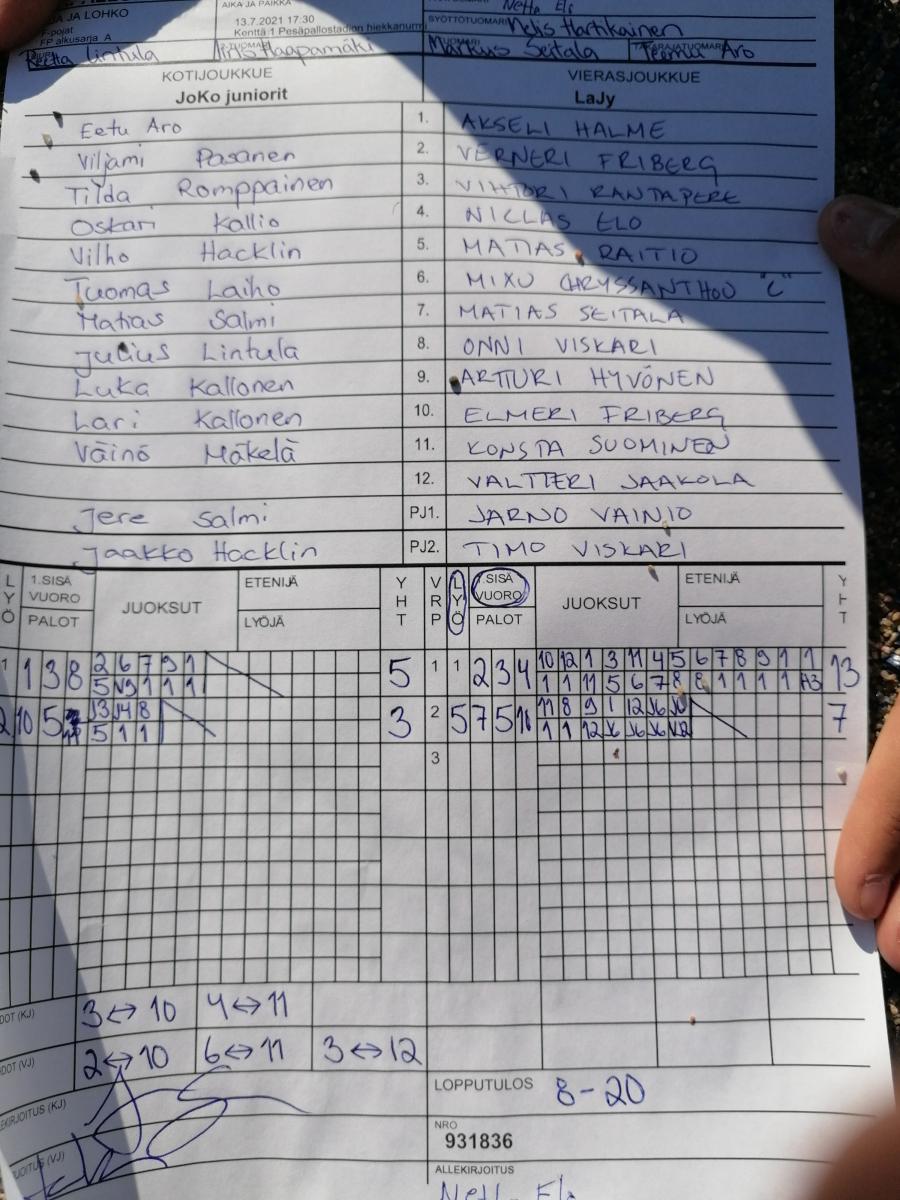 JA LOHKO
F-pojat
FP alkusarja A
AIKA JA PAIKKA
13.7.2021 17:30
Kenttä 1 Pesäpallostadion hiekkanurmi
Nette Els
SYÖTTÖTUOMARI
Hartikainen
Reetta Lintula
Iiris Haapamäki
Markus Seitala
TAKARAJATUOMARI
Teemu Aro
KOTIJOUKKUE VIERASJOUKKUE
JoKo juniorit LaJy
Eetu Aro 1. AKSELI HALME
Viljami Pasanen 2. VERNERI FRIBERG
Tilda Romppainen 3. VIHTORI RANTAPERE
Oskari Kallio 4. NICLAS ELO
Vilho Hacklin 5. MATIAS RAITIO
Tuomas Laiho 6. MIXU CHRYSSANTHOU "C"
Matias Salmi 7. MATIAS SEITALA
Julius Lintula 8. ONNI VISKARI
Luka Kallonen 9. ARTTURI HYVÖNEN
Lari Kallonen 10. ELMERI FRIBERG
Väinö Mäkelä 11. KONSTA SUOMINEN
12. VALTTERI JAAKOLA
Jere Salmi PJ1. JARNO VAINIO
Jaakko Hacklin PJ2. TIMO VISKARI
LYÖ 1.SISÄ VUORO PALOT JUOKSUT ETENIJÄ LYÖJÄ YHT VRP LYÖ 1.SISÄ VUORO PALOT JUOKSUT ETENIJÄ LYÖJÄ YHT
1 1 3 8 2 6 7 9 1 5 1 1 2 3 4 10 12 1 3 11 4 5 6 7 8 9 1 1 13
5 1 1 1 1 1 11 5 6 7 8 8 1 1 1 1
2 10 5 8 3 2 5 7 5 11 8 9 1 12 7
5 1 1 1 1 12
3
3↔10 4↔11
2↔10 6↔11 3↔12
LOPPUTULOS 8-20
NRO
931836
ALLEKIRJOITUS